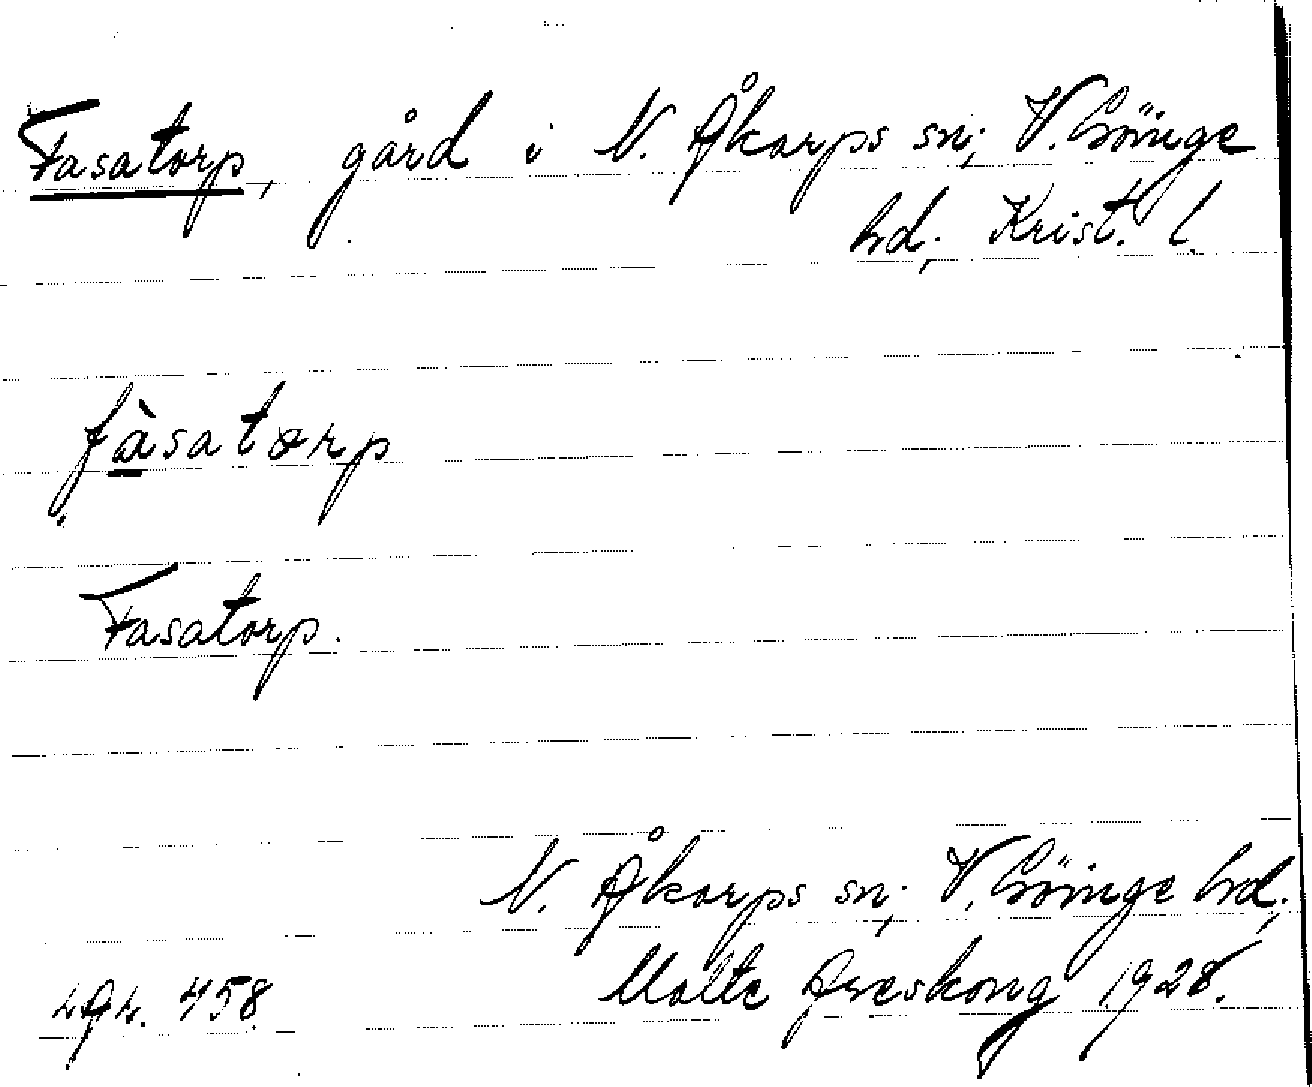 Fasatorp, gård i N. Åkarps sn; V. Göinge
hd; Krist. l.
fàsatorp
Fasatorp.
N. Åkarps sn; V. Göinge hd;
Malte Areskoug 1928.
458